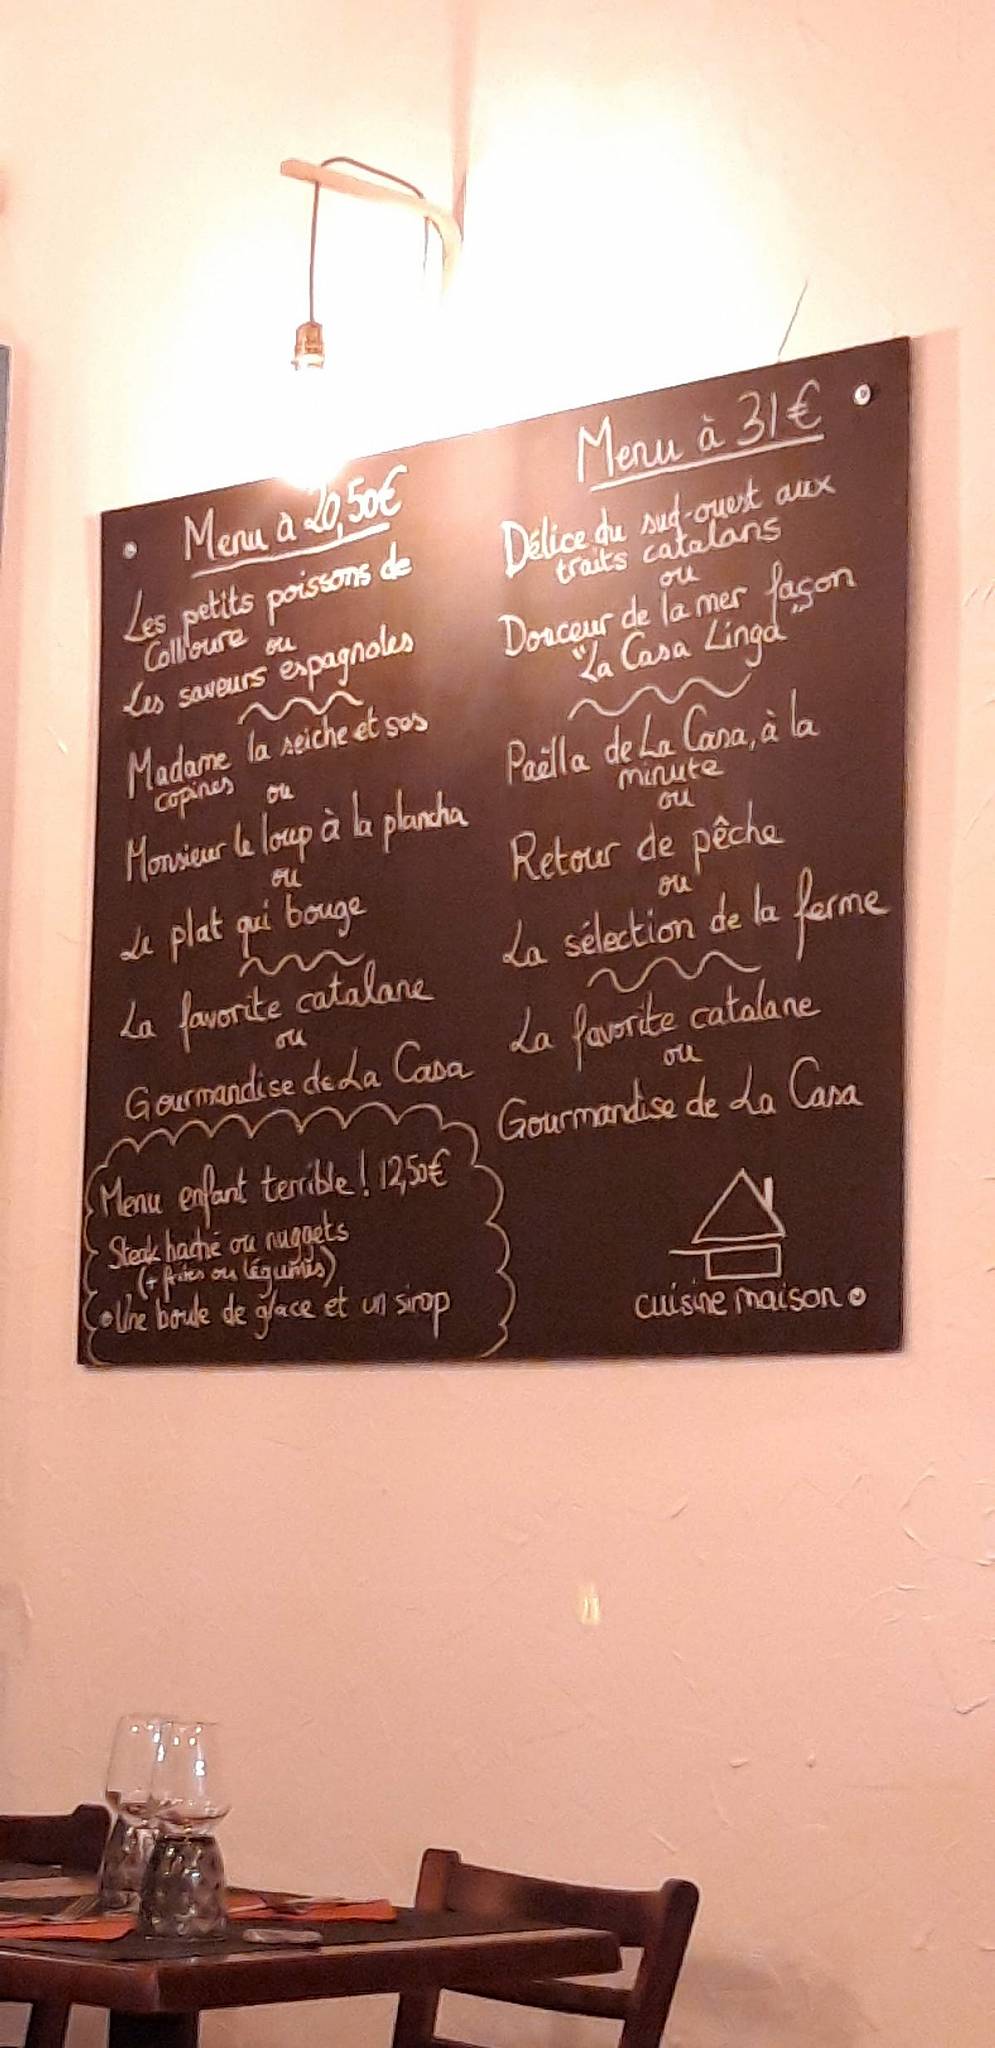 Menu à 20,50€
Les petits poissons de
Collioure ou
Les saveurs espagnoles
Madame la seiche et ses
copines ou
Monsieur le loup à la plancha
ou
Le plat qui bouge
La favorite catalane
ou
Gourmandise de La Casa
Menu enfant terrible! 12,50€
Steak haché ou nuggets
(+ frites ou légumes)
Une boule de glace et un sirop
Menu à 31€
Délice du sud-ouest aux
traits catalans
ou
Douceur de la mer façon
"La Casa Linga"
Paëlla de La Casa, à la
minute
ou
Retour de pêche
ou
La sélection de la ferme
La favorite catalane
ou
Gourmandise de La Casa
cuisine maison